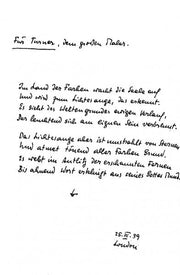 Für Turner, dem großen Maler.
Im Land der Farben wacht die Seele auf
Und wird zum Lichtesange, das erkennt.
Es sieht des Weltengrundes ewigen Verlauf,
Der leuchtend sich am eignen Sein verbrennt.
Das Lichtesange aber ist umstrahlt von Sternen
Und atmet tönend aller Farben Grund.
Es webt im Antlitz der erschauten Fernen
Bis ahnend Wort erklingt aus seines Gottes Mund.
London